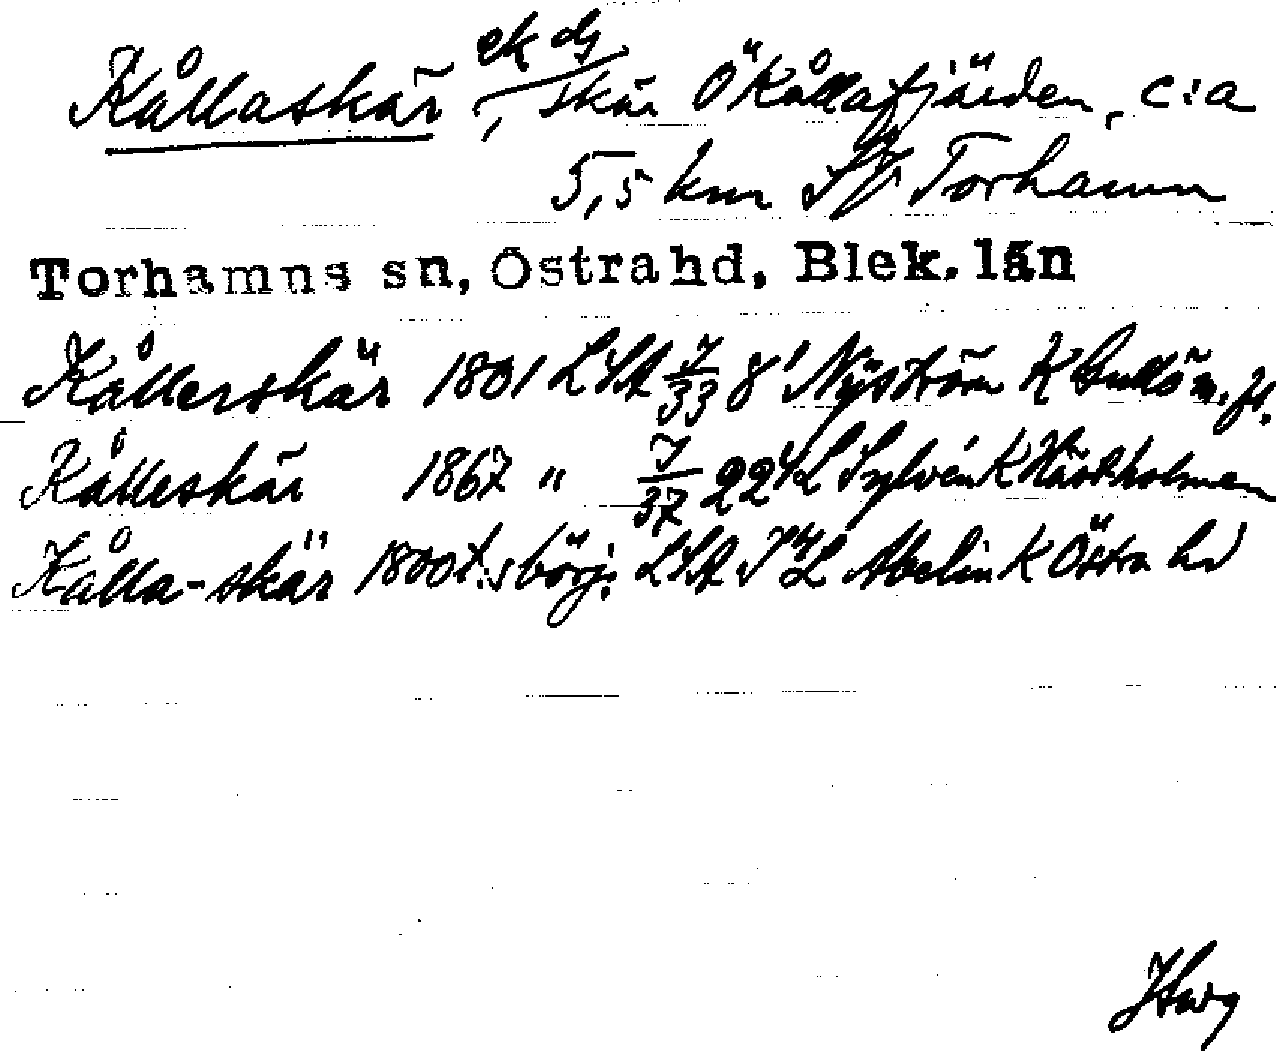 ek dj
Kållaskär, skär Ö Kållafjärden, c:a
5,5 km SV Torhamn
Torhamns sn, Östra hd, Blek. län
Kållerskär 1801 LSA J/33 8¹ Nyström K Gullö m. fl.
Kålleskär 1867 " J/37 22 Sylvén K Hästholmen
Kålla-skär 1800t:s börj. LSA Abelin K Östra hd